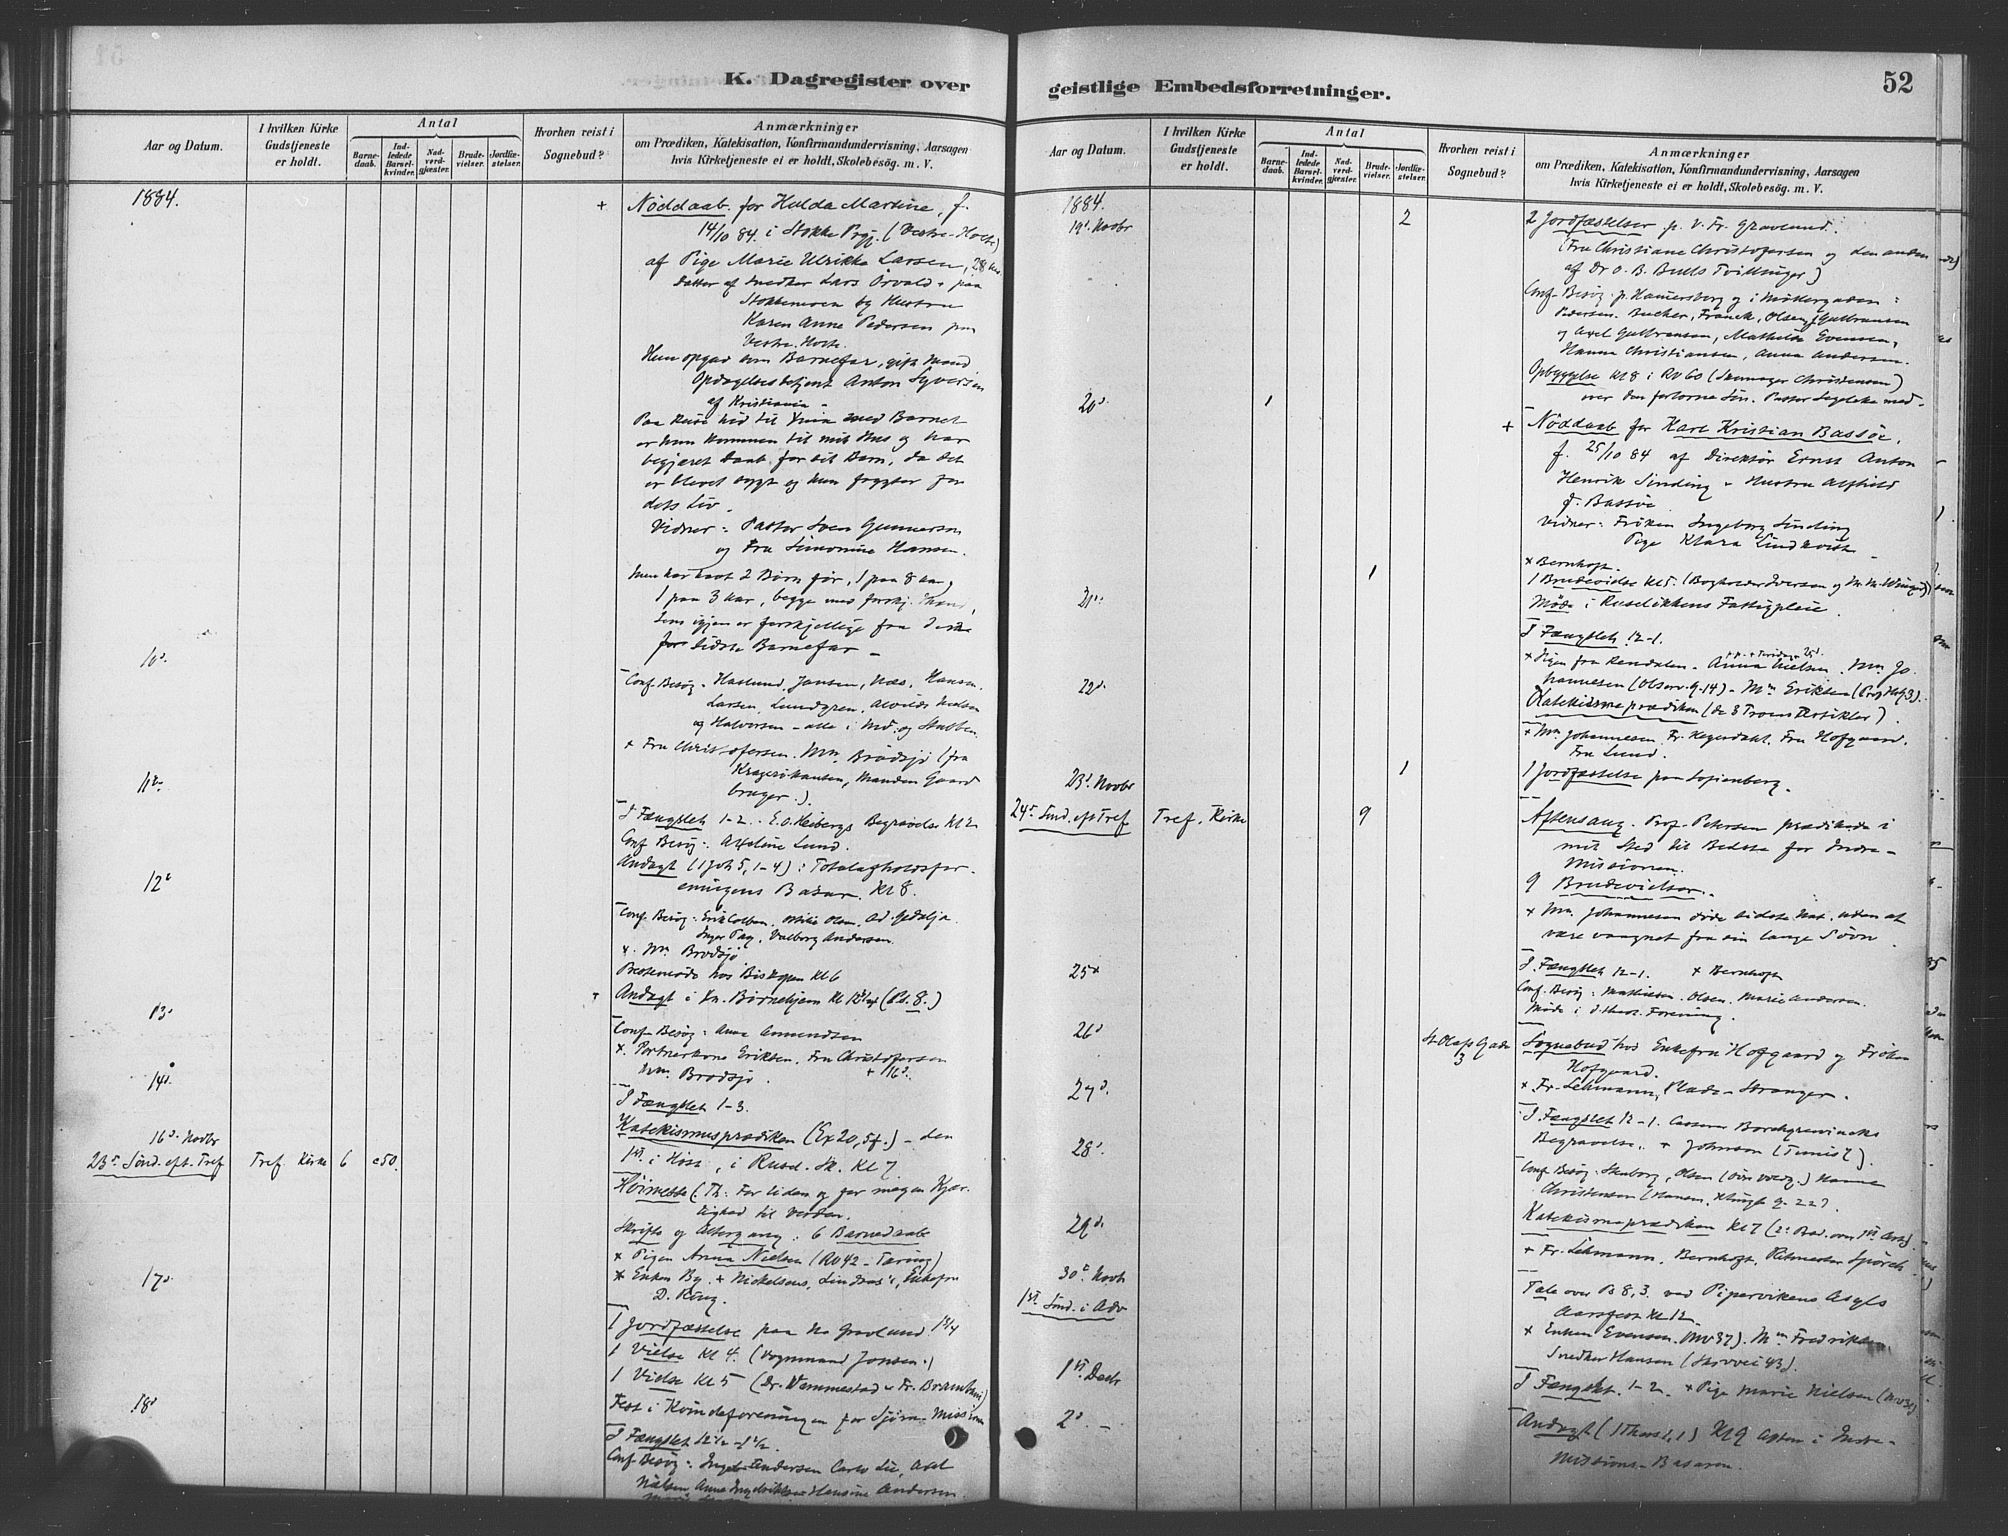 K. Dagregister over
Aar og Datum.
I hvilken Kirke Gudstjeneste er holdt.
Antal
Barnedaab.
Indledede Barselkvinder.
Nadverdgjæster.
Brudevielser.
Jordfæstelser.
Hvorhen reist i Sognebud?
Anmærkninger
om Prædiken, Katekisation, Konfirmandundervisning, Aarsagen
hvis Kirketjeneste ei er holdt, Skolebesøg. m. V.
1884.
+ Nöddaab for Hulda Martine, f.
14/10 84. i Stokke Prgj. (Vestre-Holte)
af Pige Marie Ulrikke Larsen, 28
Datter af Snedker Lars Örvald paa
Stokkemoen og Hustru
Karen Anne Pedersen paa
Vestre Holte.
Hun opgav som Barnefar, gift Mand
Opdagelsesbetjent Anton Syversen
af Kristiania
Paa Reise hid til Xnia med Barnet
er hun kommen til mit Hus og har
begjæret Daab for sit Barn, da det
er blevet sygt og hun frygter for
dets Liv.
Vidner: Pastor Sven Gunnersen
og Fru Simonine Hansen.
Hun har havt 2 Börn för, 1 paa 8 Aar,
1 paa 3 Aar, begge med forskj. Mænd,
som igjen er forskjellige fra dette
sidste Barnefar –
10d.
Conf-Besög. Haslund, Jansen, Næs, Hansen.
Larsen, Lundgren, Alvilde Nielsen
og Halvorsen – alle i Md. og Stubben
+ Fru Christofersen. Mm. Brödsjö (fra
Manden Gaard
bruger.).
11te
I Fængslet 1-2. E.O. Heibergs Begravelse Kl 2
Conf Besög: Axeline Lund.
Andagt (1 Joh 5, 1-4): Totalafholdsfor
eningens Basar. Kl 8.
12te
Conf. Besög: Erik Colban, Olsen, Ad. Gedalja
Inger Pay, Valborg Andersen.
+. Mm Brodsjö
Prestemöde hos Biskopen Kl 6
Andagt i Börnehjem Kl (Ps. 8.)
13d
Conf-Besög: Anna Amundsen
+. Portnerkone Eriksen. Fru Christofersen
Mm. Brodsjö. + 16d.
14d.
I Fængslet 1-3.
Katekismusprædiken (Ex 20, 5f.) – den
i Rusel. Sk. Kl 7
16d. Novbr
23de Sönd. eft. Tref
Tref. Kirke 6 c50.
Höimesse (Th: For liden og for megen Kjær-
lighed til Verden.
Skrifte og Altergang. 6 Barnedaab
+ Pigen Anna Nielsen (Rv 42 – Tæring)
+ Enken By. + Nickelsens, Enkefru
D. Ring.
17d.
1 Jordfæstelse paa Gravlund
1 Vielse Kl 4. (Vognmand Jonsen.)
1 Vielse Kl 5 (Dr. Wemmestad & Fr.
Fest i Kvindeforeningen for Sjöm. Mission
18d
I Fængslet 12½-1½.
Conf. Besög: Andersen Carls Lie, Axel
Nielsen, Hansine Andersen

geistlige Embedsforretninger. 52
Aar og Datum.
I hvilken Kirke Gudstjeneste er holdt.
Antal
Barnedaab.
Indledede Barselkvinder.
Nadverdgjæster.
Brudevielser.
Jordfæstelser.
Hvorhen reist i Sognebud?
Anmærkninger
om Prædiken, Katekisation, Konfirmandundervisning, Aarsagen
hvis Kirketjeneste ei er holdt, Skolebesøg. m. V.
1884.
19d. Novbr 2
2 Jordfæstelser p. V. Fr. Gravlund.
(Fru Christiane Christofersen og den anden
af Dr O. B. Bulls Tvillinger)
Conf-Besög p. Hamersborg og i Möllergaden:
Pedersen. Bucher, Franck, Olsen, Gulbransen
og Axel Gulbransen, Mathilde Evensen,
Hanna Christiansen, Anna Andersen.
Opbyggelse Kl 8 i Rv 60 (Skomager Christensen)
over den fortorne Sön. Pastor med.
20d 1
+ Nöddaab for Karl Kristian Bassöe,
f. 25/10 84 af Direktör Ernst Anton
Henrik Sinding & Hustru Alfhild
f. Bassöe
Vidner: Fröken Ingeborg Sinding
Pige Klara Lindkvist
+ Bernhoft.
1
1 Brudevielse Kl 5. (Bogholder Iversen og
21d.
Möde i Ruselökkens Fattigpleie.
I Fængslet 12-1.
+ Pigen fra Rendalen. Anna Nielsen. Mm Jo-
hannesen (Observ. g. 14) – Mm Eriksen
22d.
Katekismeprædiken (de 3 Troens Artikler).
+ Mm Johannesen, Fr. Hegerdahl. Fru Hofgaard.
Fru Lund.
23d. Novbr 1
1 Jordfæstelse paa Sofienberg.
24de Sönd. eft Tref Tref. Kirke 9
Aftensang. Prof. Petersen prædikede i
mit Sted til Bedste for Indre-
Missionen.
9 Brudevielser.
+ Mm. Johannesen döde sidste Nat, uden at
være vaagnet fra sin lange Sövn.
25d
I Fængslet 12-1. + Bernhoft
Conf. Besög: Mathiesen, Olsen. Marie Andersen.
Möde i d. theol. Forening.
26d St Olafs Gade 3
Sognebud hos Enkefru Hofgaard og Fröken
Hofgaard.
+ Fr. Lehmann, Stranger.
27d.
I Fængslet 12-1. Borchgrevincks
Begravelse. + Johnson (Tunis?).
28d.
Conf. Besög: Skaborg, Olsen Hanna
Christensen (Hansen,
29d.
Katekismeprædiken Kl 7 (2: Præd. over 1ste Art.)
+ Fr. Lehmann, Bernhoft, Ritmester Spörck
30te Novb
1ste Sönd. i Adv
Tale over Ps 8,3. ved Pipervikens Asyls
Aarsfest Kl 12
+ Enken Evensen. (Mv 37). Mm Fredriksen
Snedker Hansen
1ste Decb
I Fængslet. 1-2. + Pige Marie Nielsen
2d –
Andagt (1 Thess 1, 1) Kl 9 Aften i Indre-
Missions-Basaren.